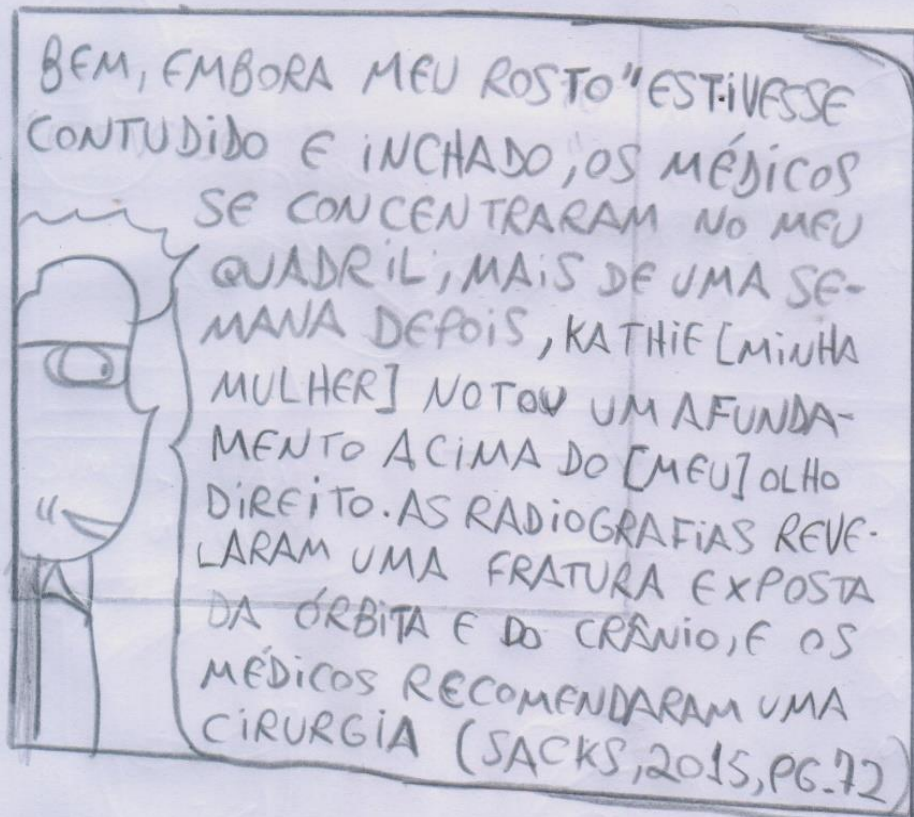 BEM, EMBORA MEU ROSTO "ESTIVESSE
CONTUDIDO E INCHADO, OS MÉDICOS
SE CONCENTRARAM NO MEU
QUADRIL; MAIS DE UMA SE-
MANA DEPOIS, KATHIE [MINHA
MULHER] NOTOU UM AFUNDA-
MENTO ACIMA DO [MEU] OLHO
DIREITO. AS RADIOGRAFIAS REVE-
LARAM UMA FRATURA EXPOSTA
DA ÓRBITA E DO CRÂNIO, E OS
MÉDICOS RECOMENDARAM UMA
CIRURGIA (SACKS, 2015, PG. 72)